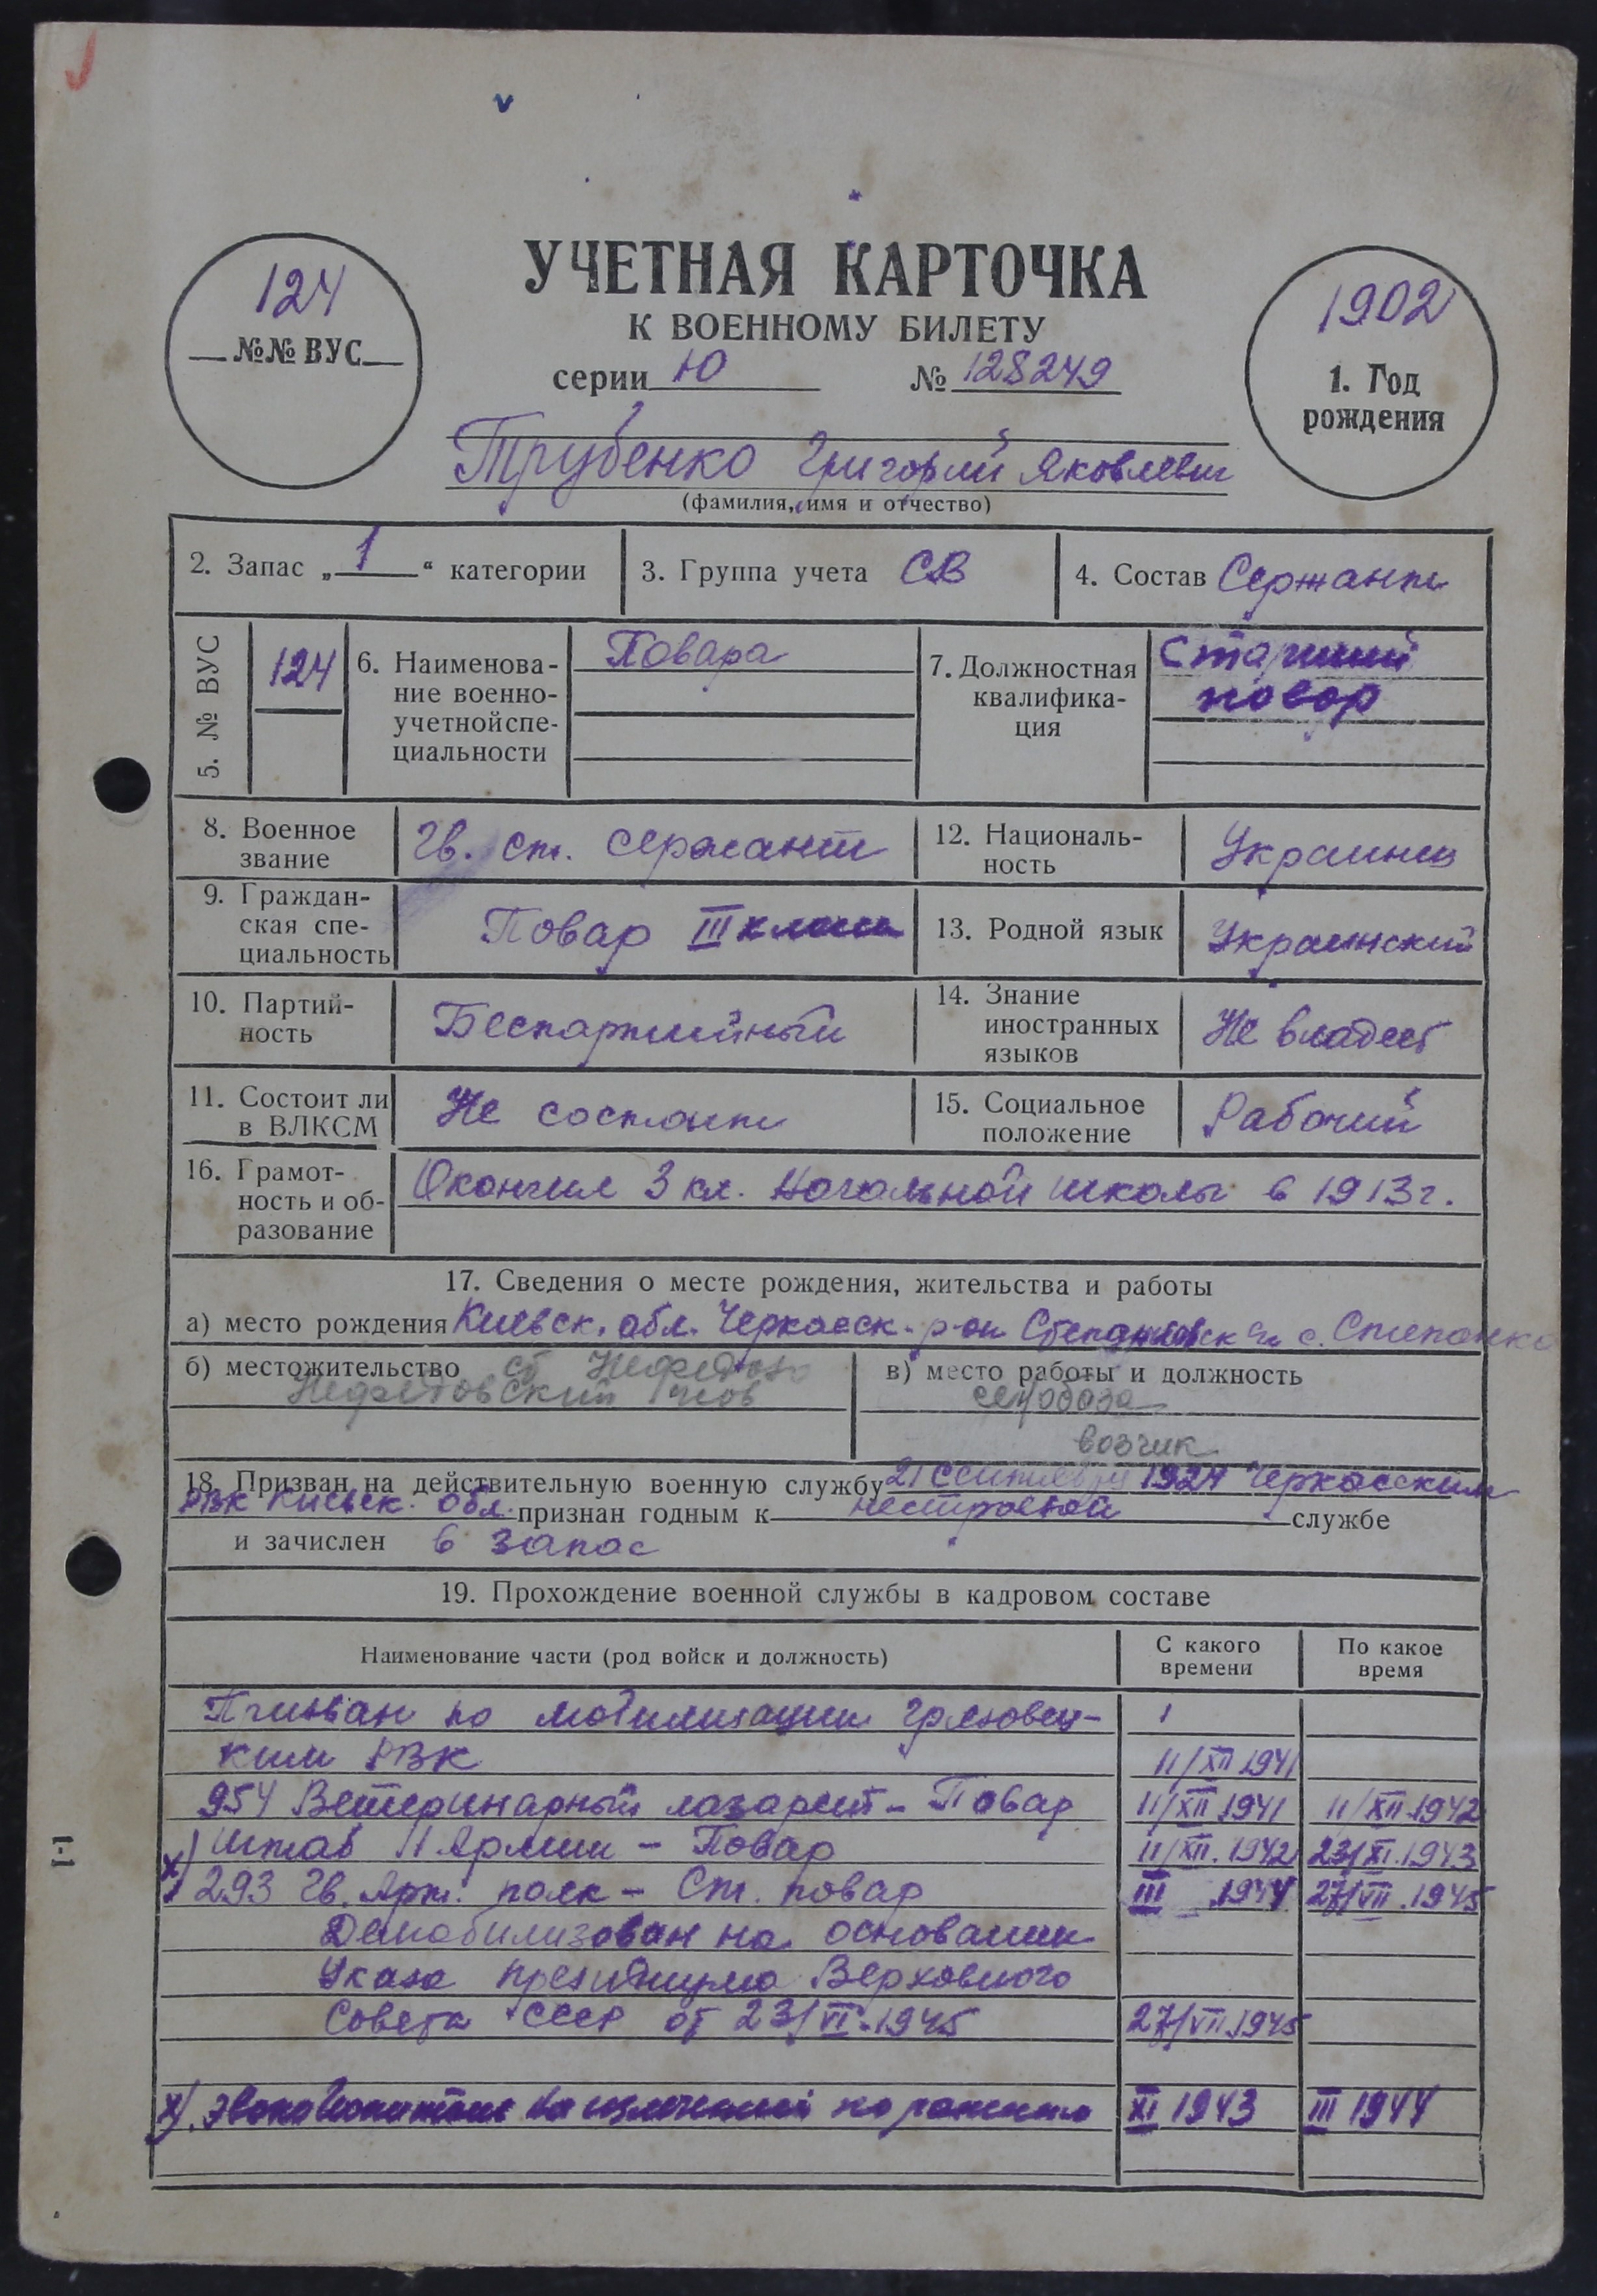 124
№№ ВУС
УЧЕТНАЯ КАРТОЧКА
К ВОЕННОМУ БИЛЕТУ
серии Ю № 128249
1902
1. Год
рождения
Трубенко Григорий Яковлевич
(фамилия, имя и отчество)
2. Запас „ 1 “ категории
3. Группа учета СВ
4. Состав Сержант
5. № ВУС
124
6. Наименова-
ние военно-
учетной спе-
циальности
Повара
7. Должностная
квалифика-
ция
Старший
повар
8. Военное
звание
Гв. ст. сержант
12. Националь-
ность
Украинец
9. Граждан-
ская спе-
циальность
Повар III класса
13. Родной язык
Украинский
10. Партий-
ность
Беспартийный
14. Знание
иностранных
языков
Не владеет
11. Состоит ли
в ВЛКСМ
Не состоит
15. Социальное
положение
Рабочий
16. Грамот-
ность и об-
разование
Окончил 3 кл. Начальной школы в 1913 г.
17. Сведения о месте рождения, жительства и работы
а) место рождения Киевск. обл. Черкасск. р-он с. Степанко
б) местожительство
Нефедовский
в) место работы и должность
возчик
18. Призван на действительную военную службу 21 сентября 1924 Черкасским
РВК Киевск. обл. признан годным к нестроевой службе
и зачислен в запас
19. Прохождение военной службы в кадровом составе
Наименование части (род войск и должность)
С какого
времени
По какое
время
Призван по мобилизации Грязовец-
ким РВК 11/XII 1941
954 Ветеринарный лазарет - Повар 11/XII 1941 11/XII 1942
х) Штаб 11 Армии - Повар 11/XII. 1942 23/XI. 1943
293 Гв. Арт. полк - Ст. повар III 1944 27/VII. 1945
Демобилизован на основании
Указа Президиума Верховного
Совета СССР от 23/VI. 1945 27/VII 1945
х). по ранению XI 1943 III 1944
1-1